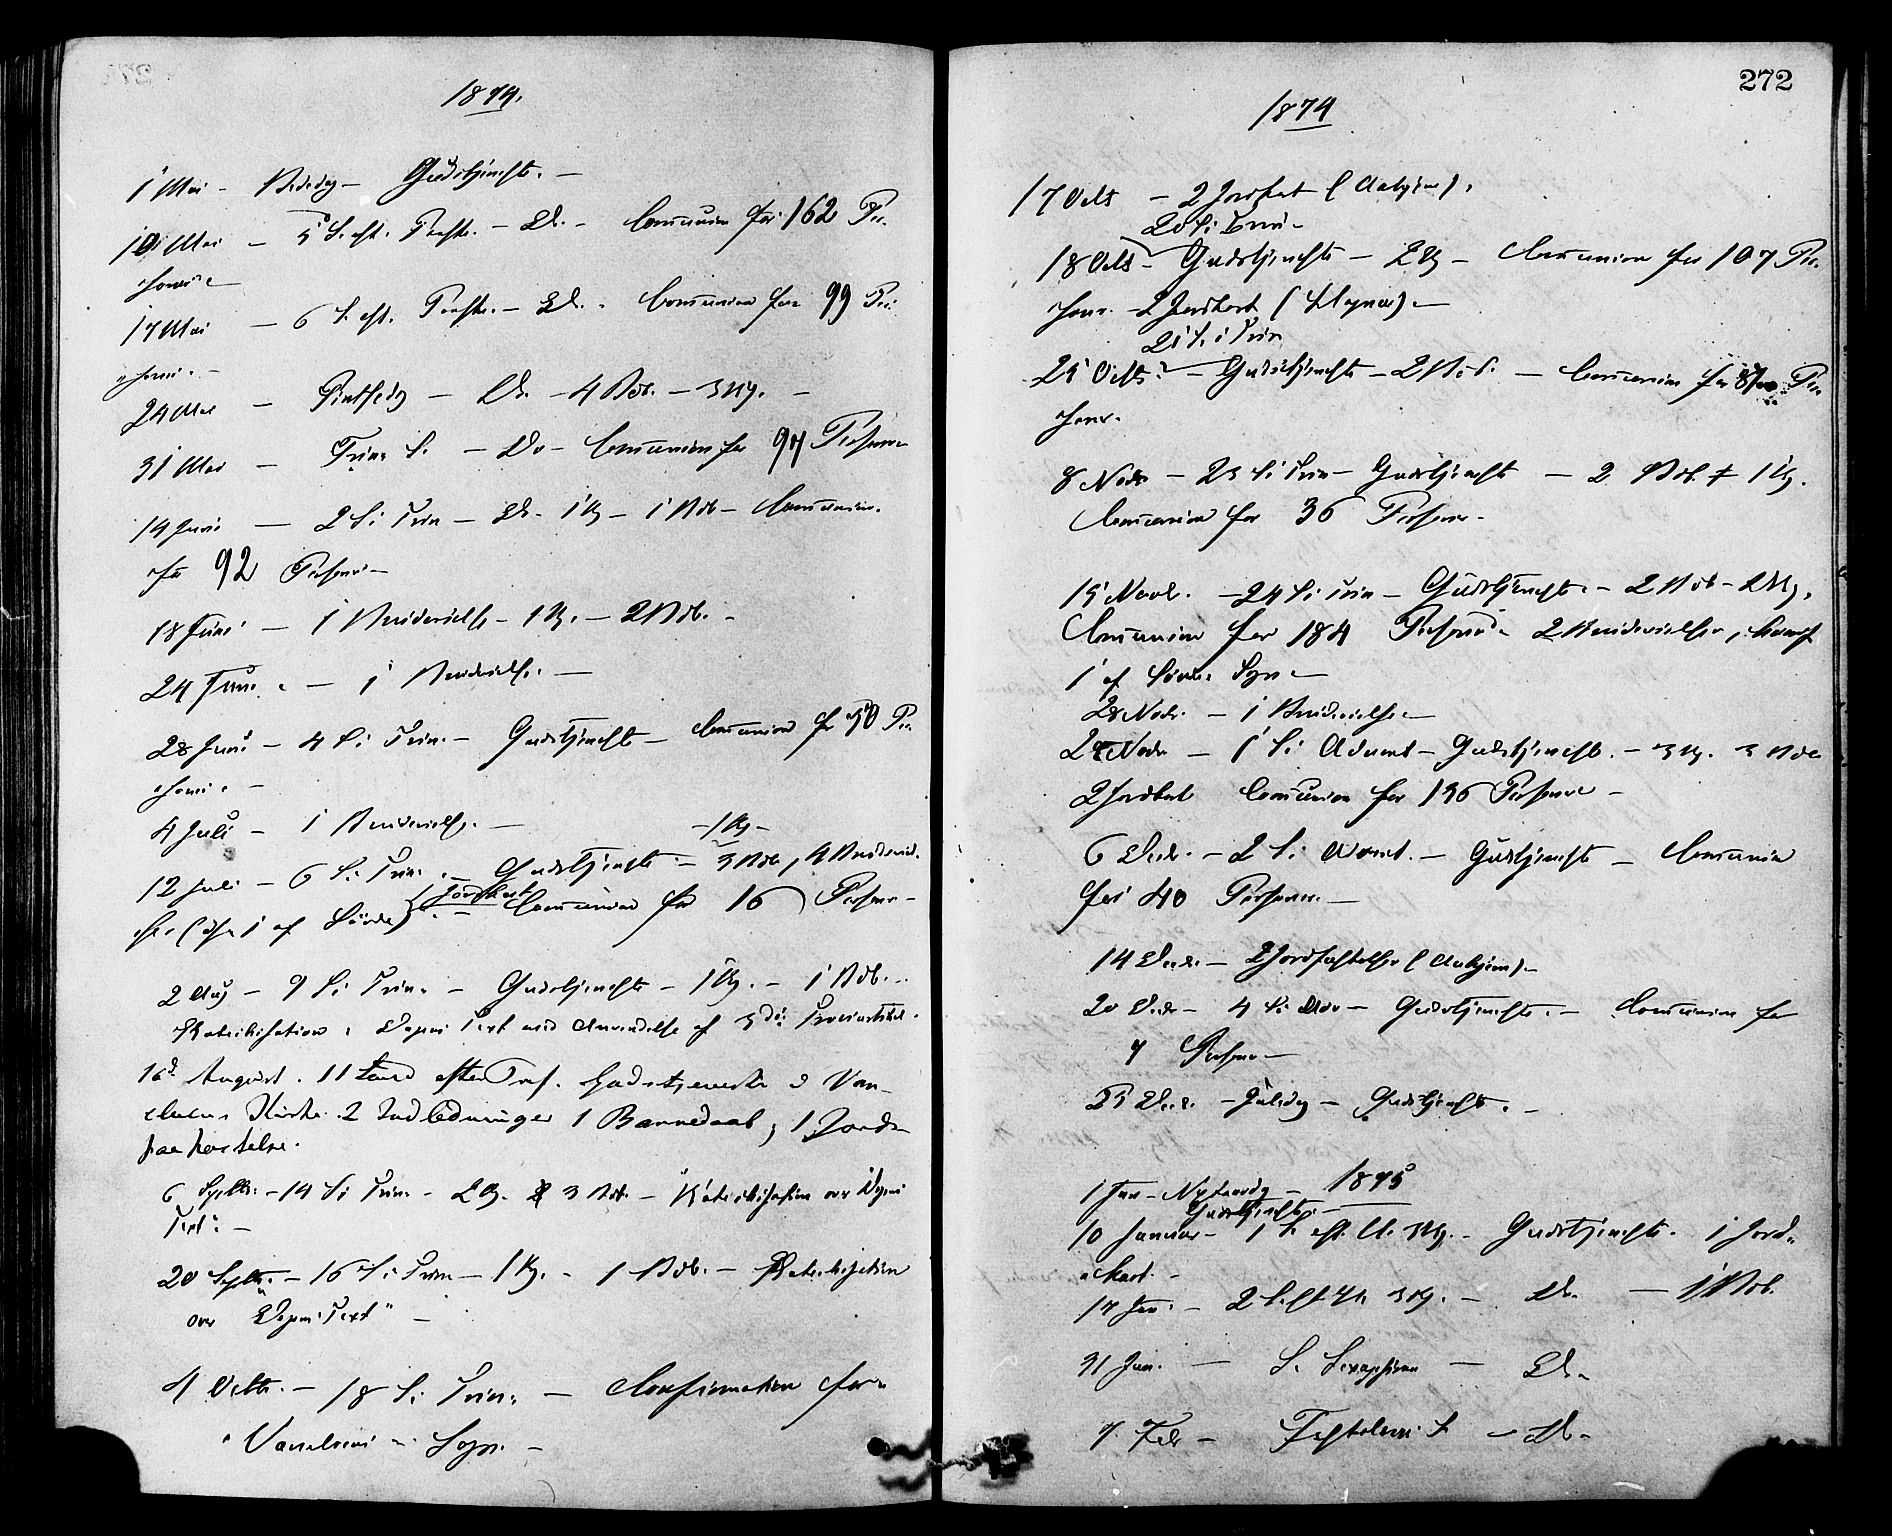 1874.
1 Mai - Bededag - Gudstjeneste. -
10 Mai - 5 S. eft. Paaske. - Do. - Communion for 162 Per-
soner -
17 Mai - 6 S. eft. Paaske. - Do. - Communion for 99 Per-
soner. -
24 Mai - Pintsedag - Do. - 4 Bdb. - 3 Kg. -
31 Mai - Trin. S. - Do - Communion for 94 Personer
14 Juni - 2 S. i Trin - Do - 1 Kg - 1 Bdb - Communion
for 92 Personer -
18 Juni - 1 Brudevielse - 1 Kg. - 2 Bdb. -
24 Juni - 1 Brudevielse. -
28 Juni - 4 S. i Trin. - Gudstjeneste - Communion for 50 Per-
soner. -
4 Juli - 1 Brudevielse. -
- 1 Kg -
12 Juli - 6 S. i Trin. - Gudstjeneste - 3 Bdb, 4 Brudeviel-
Jordkast
ser (1 af Söndre) - Communion for 16 Personer -
2 Aug - 9 S. i Trin. - Gudstjeneste - 1 Kg. - 1 Bdb. -
Katechisation. Dagens Text med Anvendelse af 3die Troesartikel.
16d August. 11 Sønd efter Trin. Gudstjeneste i Van-
Kirke. 2 Indledninger 1 Barnedaab, 1 Jords-
paakastelse.
6 Septbr. - 14 S. i Trin. - 2 Kg. 3 Bdb. - Katechisation over Dagens
Text. -
20 Septbr. - 16 S. i Trin - 1 Kg. - 1 Bdb. - Katechisation
over Dagens Text" -
4 Octbr. - 18 S. i Trin. - Confirmation for
Sogn. -
272
1874
17 Octb - 2 Jordkast (Aabyen).
20 S. i Trin -
18 Octb - Gudstjeneste - 2 Kg - Communion for 107 Per-
soner - 2 Jordkast -
21 S. i Trin
25 Octb. - Gudstjeneste - 2 Bdb. - Communion for Per-
soner.
8 Novbr - 23 S. i Trin - Gudstjeneste - 2 Bdb. + 1 Kg.
Communion for 36 Personer -
15 Novb. - 24 S. i Trin - Gudstjeneste - 2 Bdb - 2 Kg.
Communion for 184 Personer 2 Brudevielser, hvoraf
1 af Söndre Sogn -
28 Novbr. - 1 Brudevielse -
29 Novbr - 1 S. i Advent - Gudstjeneste. - 3 Kg. 3 Bdb
2 Jordkast Communion for 136 Personer -
6 Decbr. - 2 S. i Advent. - Gudstjeneste - Communion
for 40 Personer. -
14 Decbr. - 2 Jordfæstelser (Aabyen) -
20 Decbr - 4 S. i Adv - Gudstjeneste. - Communion for
7 Personer -
25 Decbr. - Juledag - Gudstjeneste. -
1875
1 Jan - Nytaarsdag -
Gudstjeneste. -
10 Januar - 1 S. eft. H. 3 Kg. - Gudstjeneste. 1 Jord-
kast. -
17 Jan. - 2 S. eft H. 3 Kg. - Do. - 1 Bdb.
31 Jan. - S. Sexagesima - Do.
7 Febr - Fastelavns S. - Do -